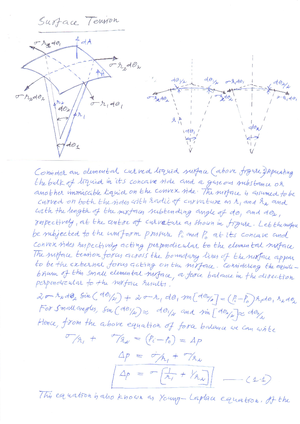 Surface Tension
σ r₂ dθ₂
dA
σ r₁ dθ₁
dθ₂
dθ₁/₂ dθ₁/₂
dθ₂/₂
Consider an elemental curved liquid surface (above figure) separating
the bulk of liquid in its concave side and a gaseous substance or
another immiscible liquid on the convex side. The surface is assumed to be
curved on both the sides with radii of curvature as r₁ and r₂ and
with the length of the surface subtending angle of dθ₁ and dθ₂,
respectively, at the centre of curvature as shown in figure. Let the surface
be subjected to the uniform pressure Pᵢ and Pₒ at its concave and
convex sides respectively acting perpendicular to the elemental surface.
The surface tension forces across the boundary lines of the surface appear
to be the external forces acting on the surface. Considering the equili-
brium of the small elemental surface, a force balance in the direction
perpendicular to the surface results.
2σ r₂ dθ₂ sin(dθ₁/₂) + 2σ r₁ dθ₁ sin(dθ₂/₂) = (Pᵢ-Pₒ) r₁dθ₁ r₂dθ₂
For small angles, sin(dθ₁/₂) = dθ₁/₂ and sin(dθ₂/₂) = dθ₂/₂
Hence, from the above equation of force balance we can write
σ/r₁ + σ/r₂ = (Pᵢ-Pₒ) = Δp
Δp = σ/r₁ + σ/r₂
Δp = σ [1/r₁ + 1/r₂]
This equation is also known as Young-Laplace equation. If the